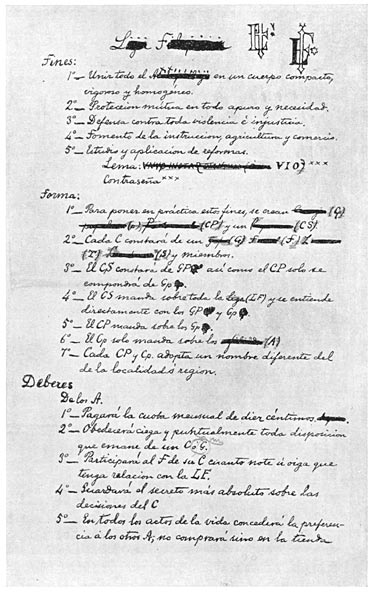 Liga Filipina LF LF
Fines:
1º_ Unir todo el en un cuerpo compacto,
vigoroso y homogéneo.
2º_ Proteccion mútua en todo apuro y necesidad.
3º_ Defensa contra toda violencia é injusticia.
4º_ Fomento de la instruccion, agricultura y comercio.
5º_ Estudio y aplicacion de reformas.
Lema: VIO xxx
Contraseña xxx
Forma:
1º_ Para poner en práctica estos fines, se crean (C)
(CP) y un (CS).
2º_ Cada C constará de un (G) (F)
(T) (S) y miembros.
3º_ El CS constará de GP así como el CP solo se
compondrá de Gp
4º_ El CS manda sobre toda la Liga (LF) y se entiende
directamente con los GP y Gp
5º_ El CP manda sobre los Gp
6º_ El Gp solo manda sobre los (A)
7º_ Cada CP y Cp. adopta un nombre diferente del
de la localidad ó region.
Déberes
De los A.
1º_ Pagará la cuota mensual de diez céntimos.
2º_ Obedecerá ciega y puntualmente toda disposicion
que emane de un C ó G.
3º_ Participará al F de su C cuanto note ú oiga que
tenga relacion con la LF.
4º_ Guardará el secreto más absoluto sobre las
decisiones del C
5º_ En todos los actos de la vida concederá la preferen-
cia á los otros A; no comprará sino en la tienda